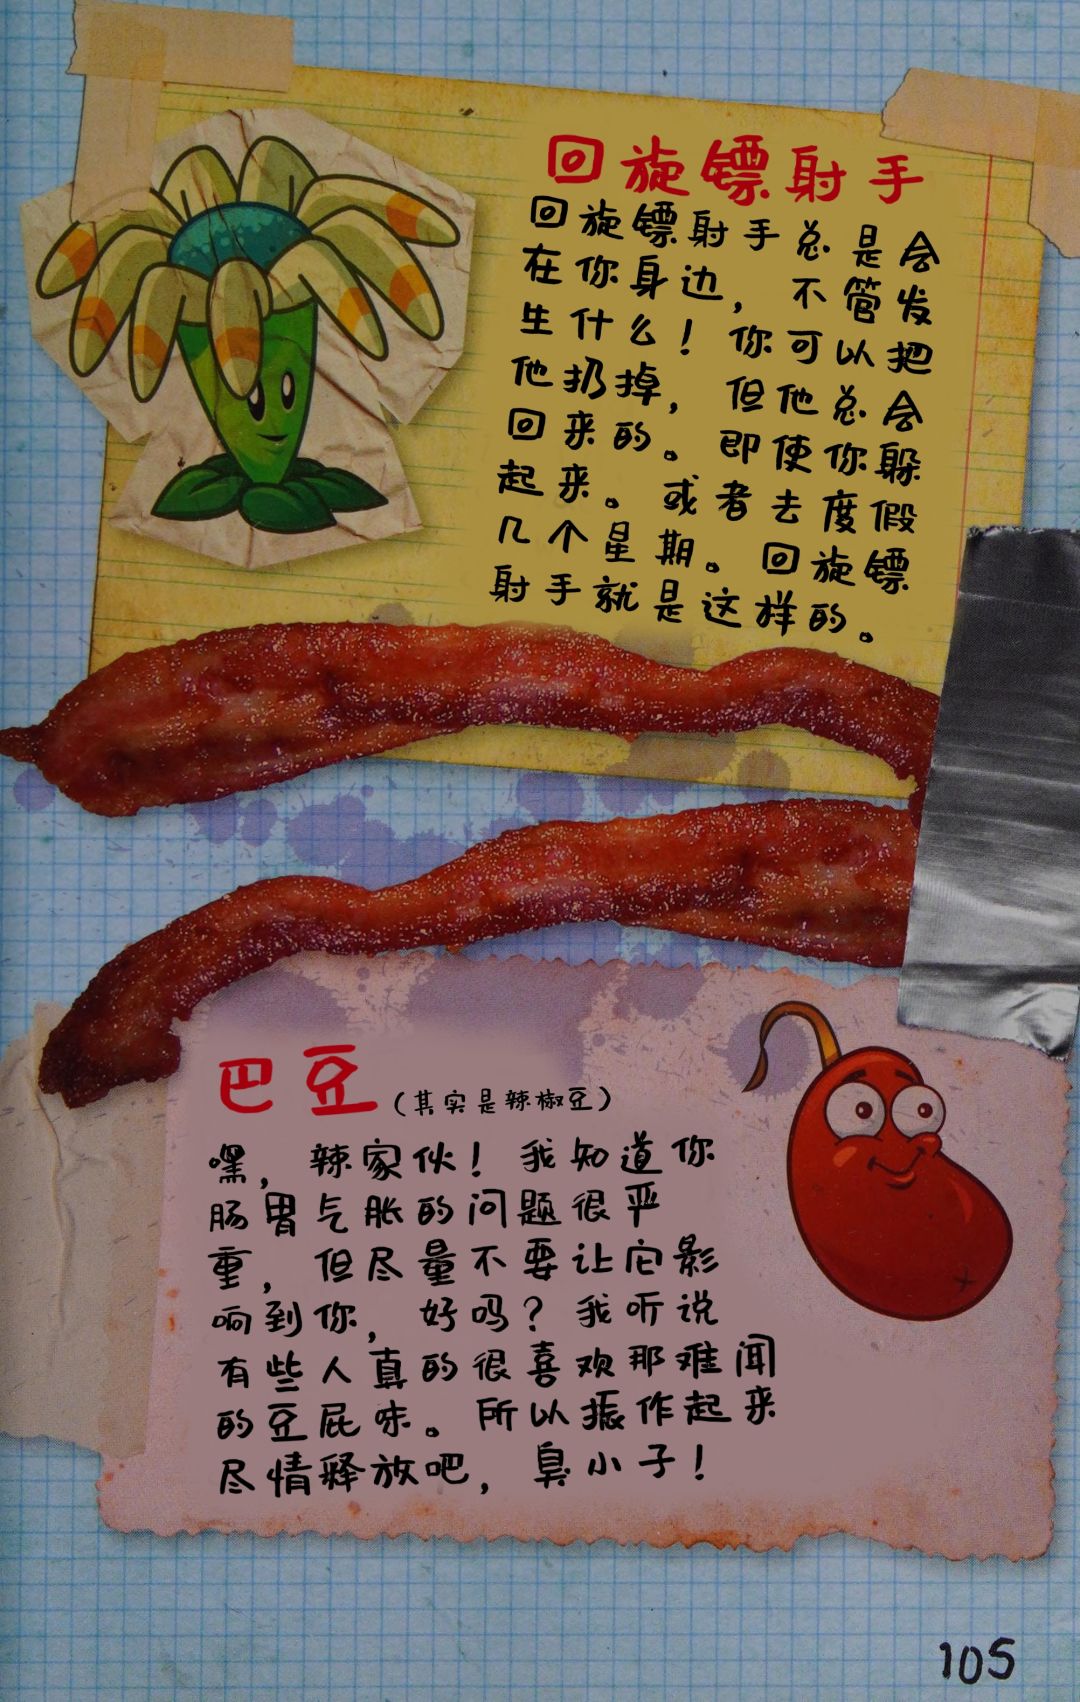 回旋镖射手
回旋镖射手总是会
在你身边，不管发
生什么！你可以把
他扔掉，但他总会
回来的。即使你躲
起来。或者去度假
几个星期。回旋镖
射手就是这样的。
巴豆（其实是辣椒豆）
嘿，辣家伙！我知道你
肠胃气胀的问题很严
重，但尽量不要让它影
响到你，好吗？我听说
有些人真的很喜欢那难闻
的豆屁味。所以振作起来
尽情释放吧，臭小子！
105